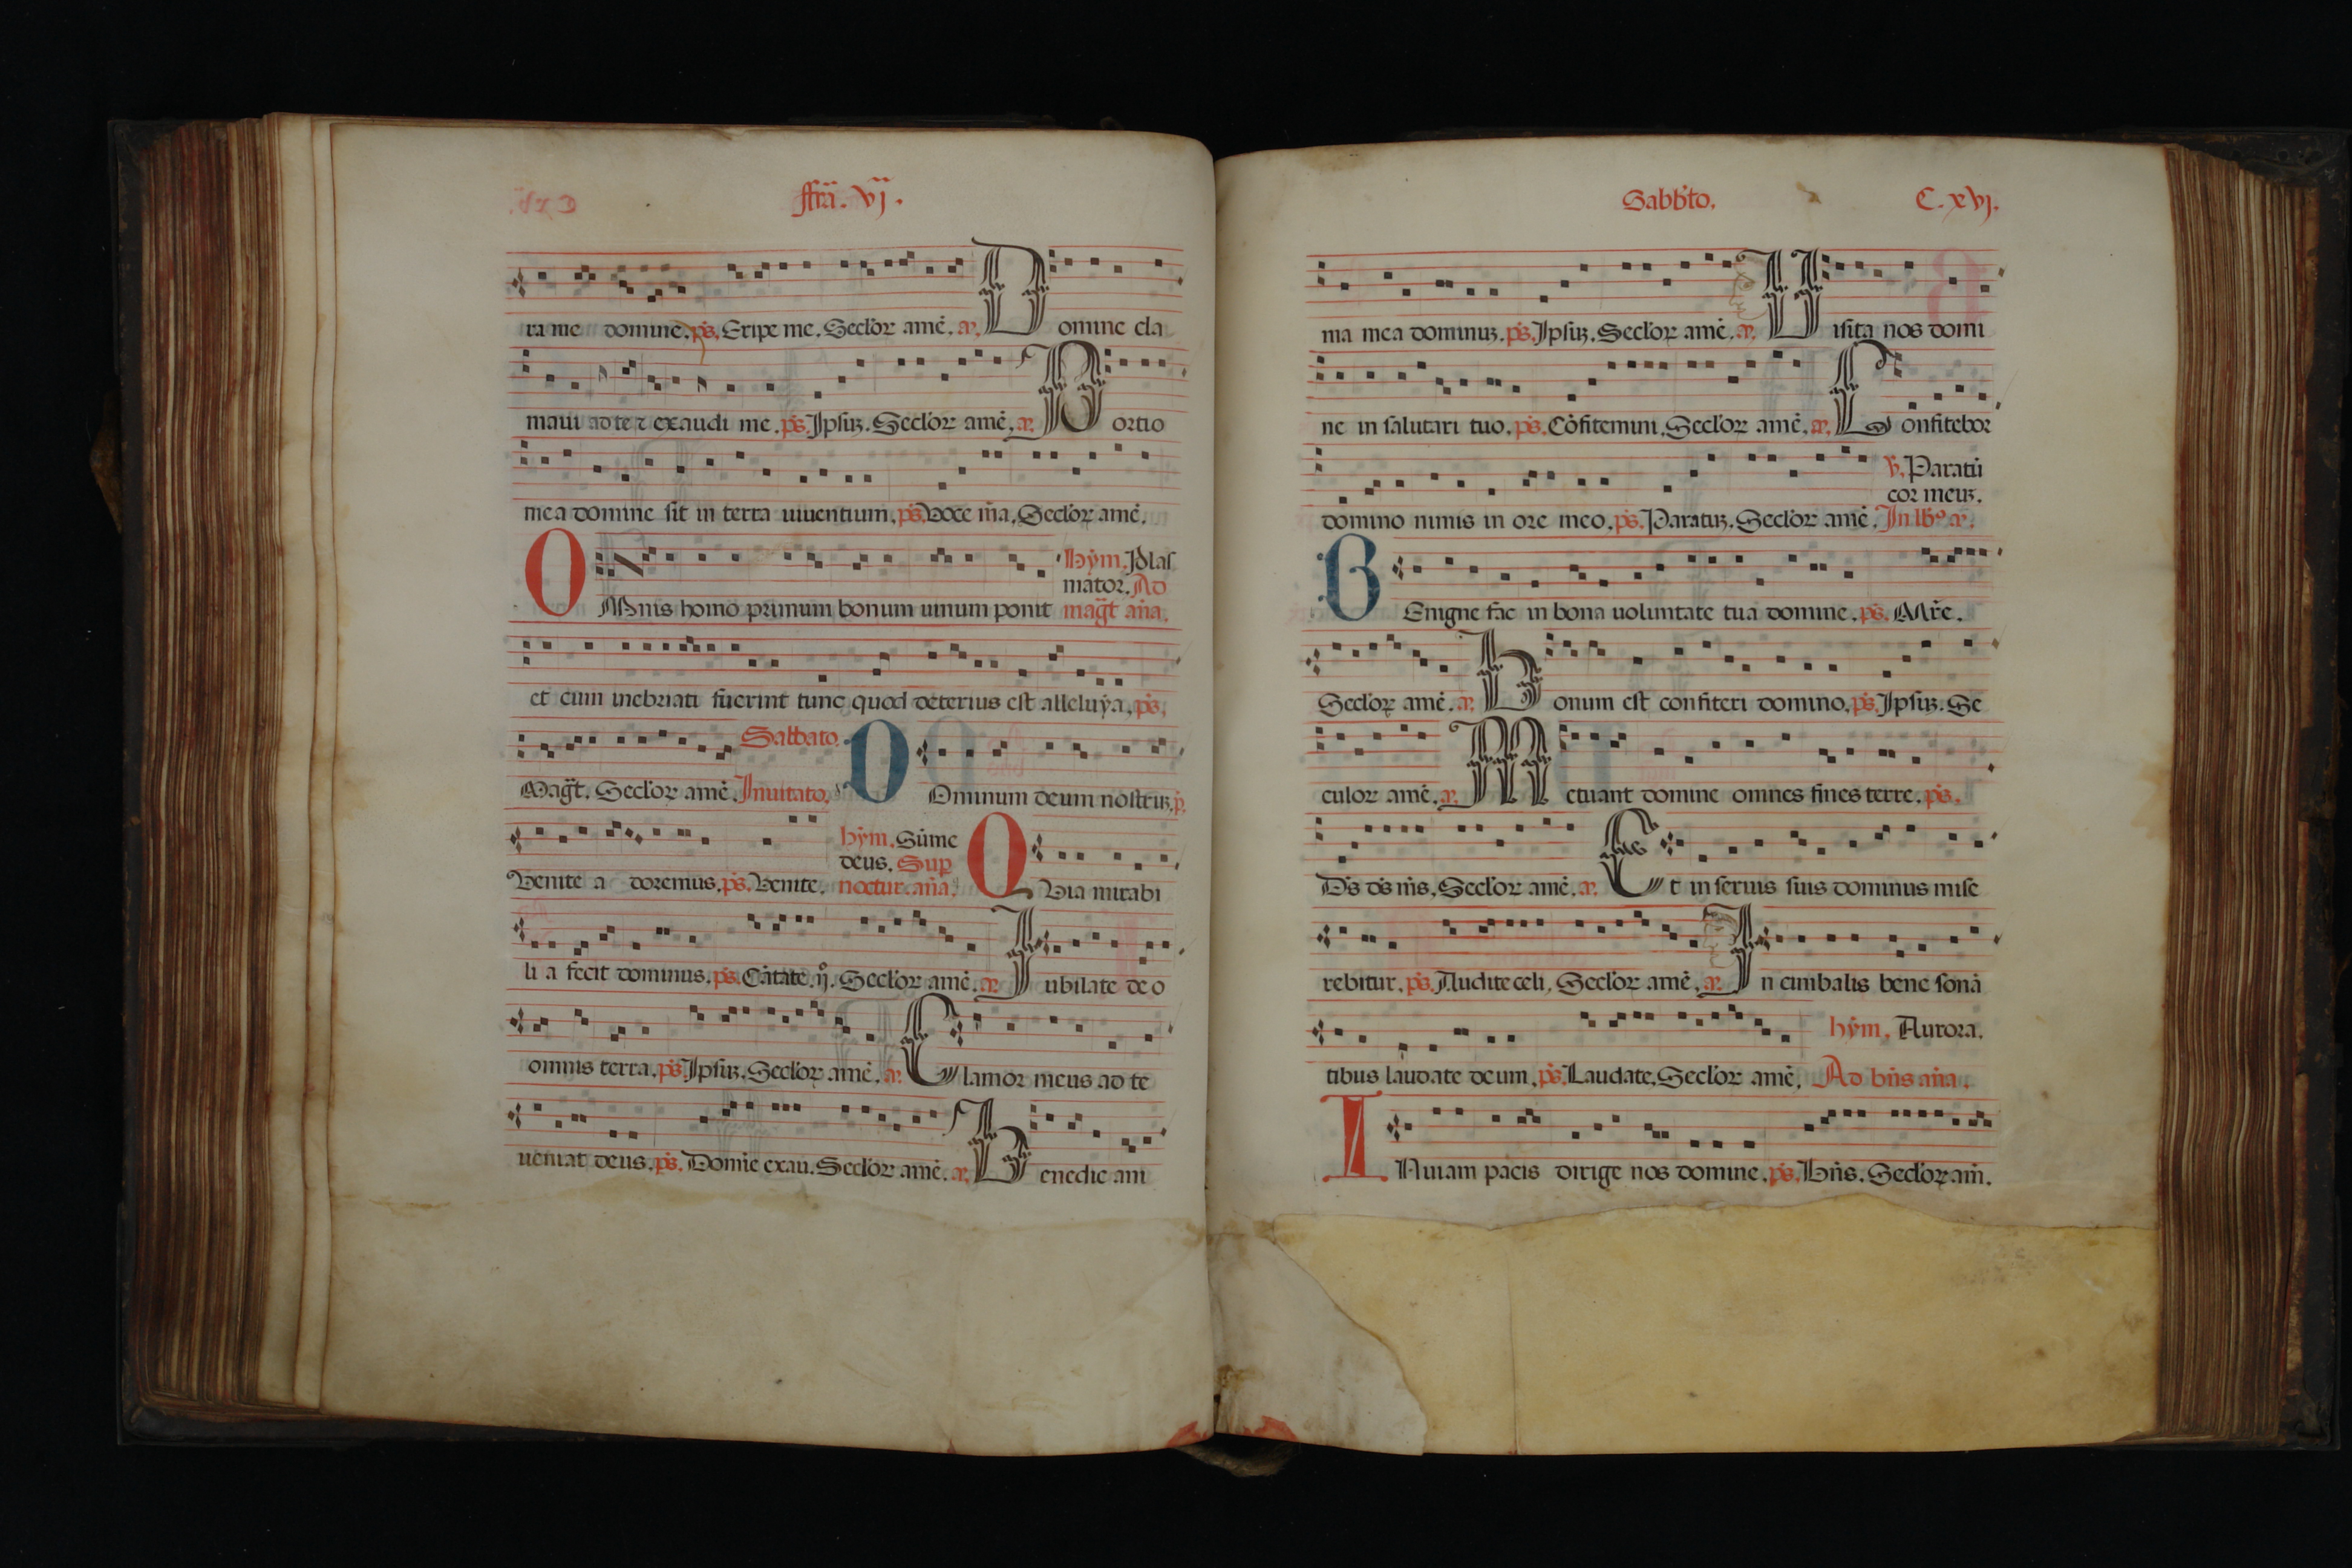 ffrã. vj.
ra me domine. ps. Eripe me. Seclor amẽ. añ. Domine cla
maui ad te ⁊ exaudi me. ps. Ipsuꝫ. Seclor amẽ. añ. Portio
mea domine sit in terra uiuentium. ps. Voce m̃a. Seclor amẽ.
hym. Plas
mator. Ad
OMnis homo primum bonum uinum ponit mag̃t añа.
et cum inebriati fuerint tunc quod deterius est alleluya. ps.
Mag̃t. Seclor amẽ. Sabbato. Inuitato. DOminum deum nostruꝫ. p̃.
Venite a doremus. ps. Venite. hym. Sũme
deus. Sup
noctur. aña. QVia mirabi
li a fecit dominus. ps. Cãtate. ij. Seclor amẽ. añ. Iubilate de o
omnis terra. ps. Ipsuꝫ. Seclor amẽ. añ. Clamor meus ad te
ueniat deus. ps. Domĩe exau. Seclor amẽ. añ. Benedic ani
Sabb̃to. C. xvj.
ma mea dominuꝫ. ps. Ipsuꝫ. Seclor amẽ. añ. Uisita nos domi
ne in salutari tuo. ps. Cõfitemini. Seclor amẽ. añ. Confitebor
℣. Paratũ
cor meuꝫ.
domino nimis in ore meo. ps. Paratuꝫ. Seclor amẽ. In lb̃º añ.
BEnigne fac in bona uoluntate tua domine. ps. Mr̃e.
Seclor amẽ. añ. Bonum est confiteri domino. ps. Ipsuꝫ. Se
culor amẽ. añ. Metuant domine omnes fines terre. ps.
Ds ds m̃s. Seclor amẽ. añ. Et in seruis suis dominus mise
rebitur. ps. Audite celi. Seclor amẽ. añ. In cimbalis bene sonã
hym. Aurora.
tibus laudate deum. ps. Laudate. Seclor amẽ. Ad bñs aña.
IN uiam pacis dirige nos domine. ps. Bñs. Seclor am̃.